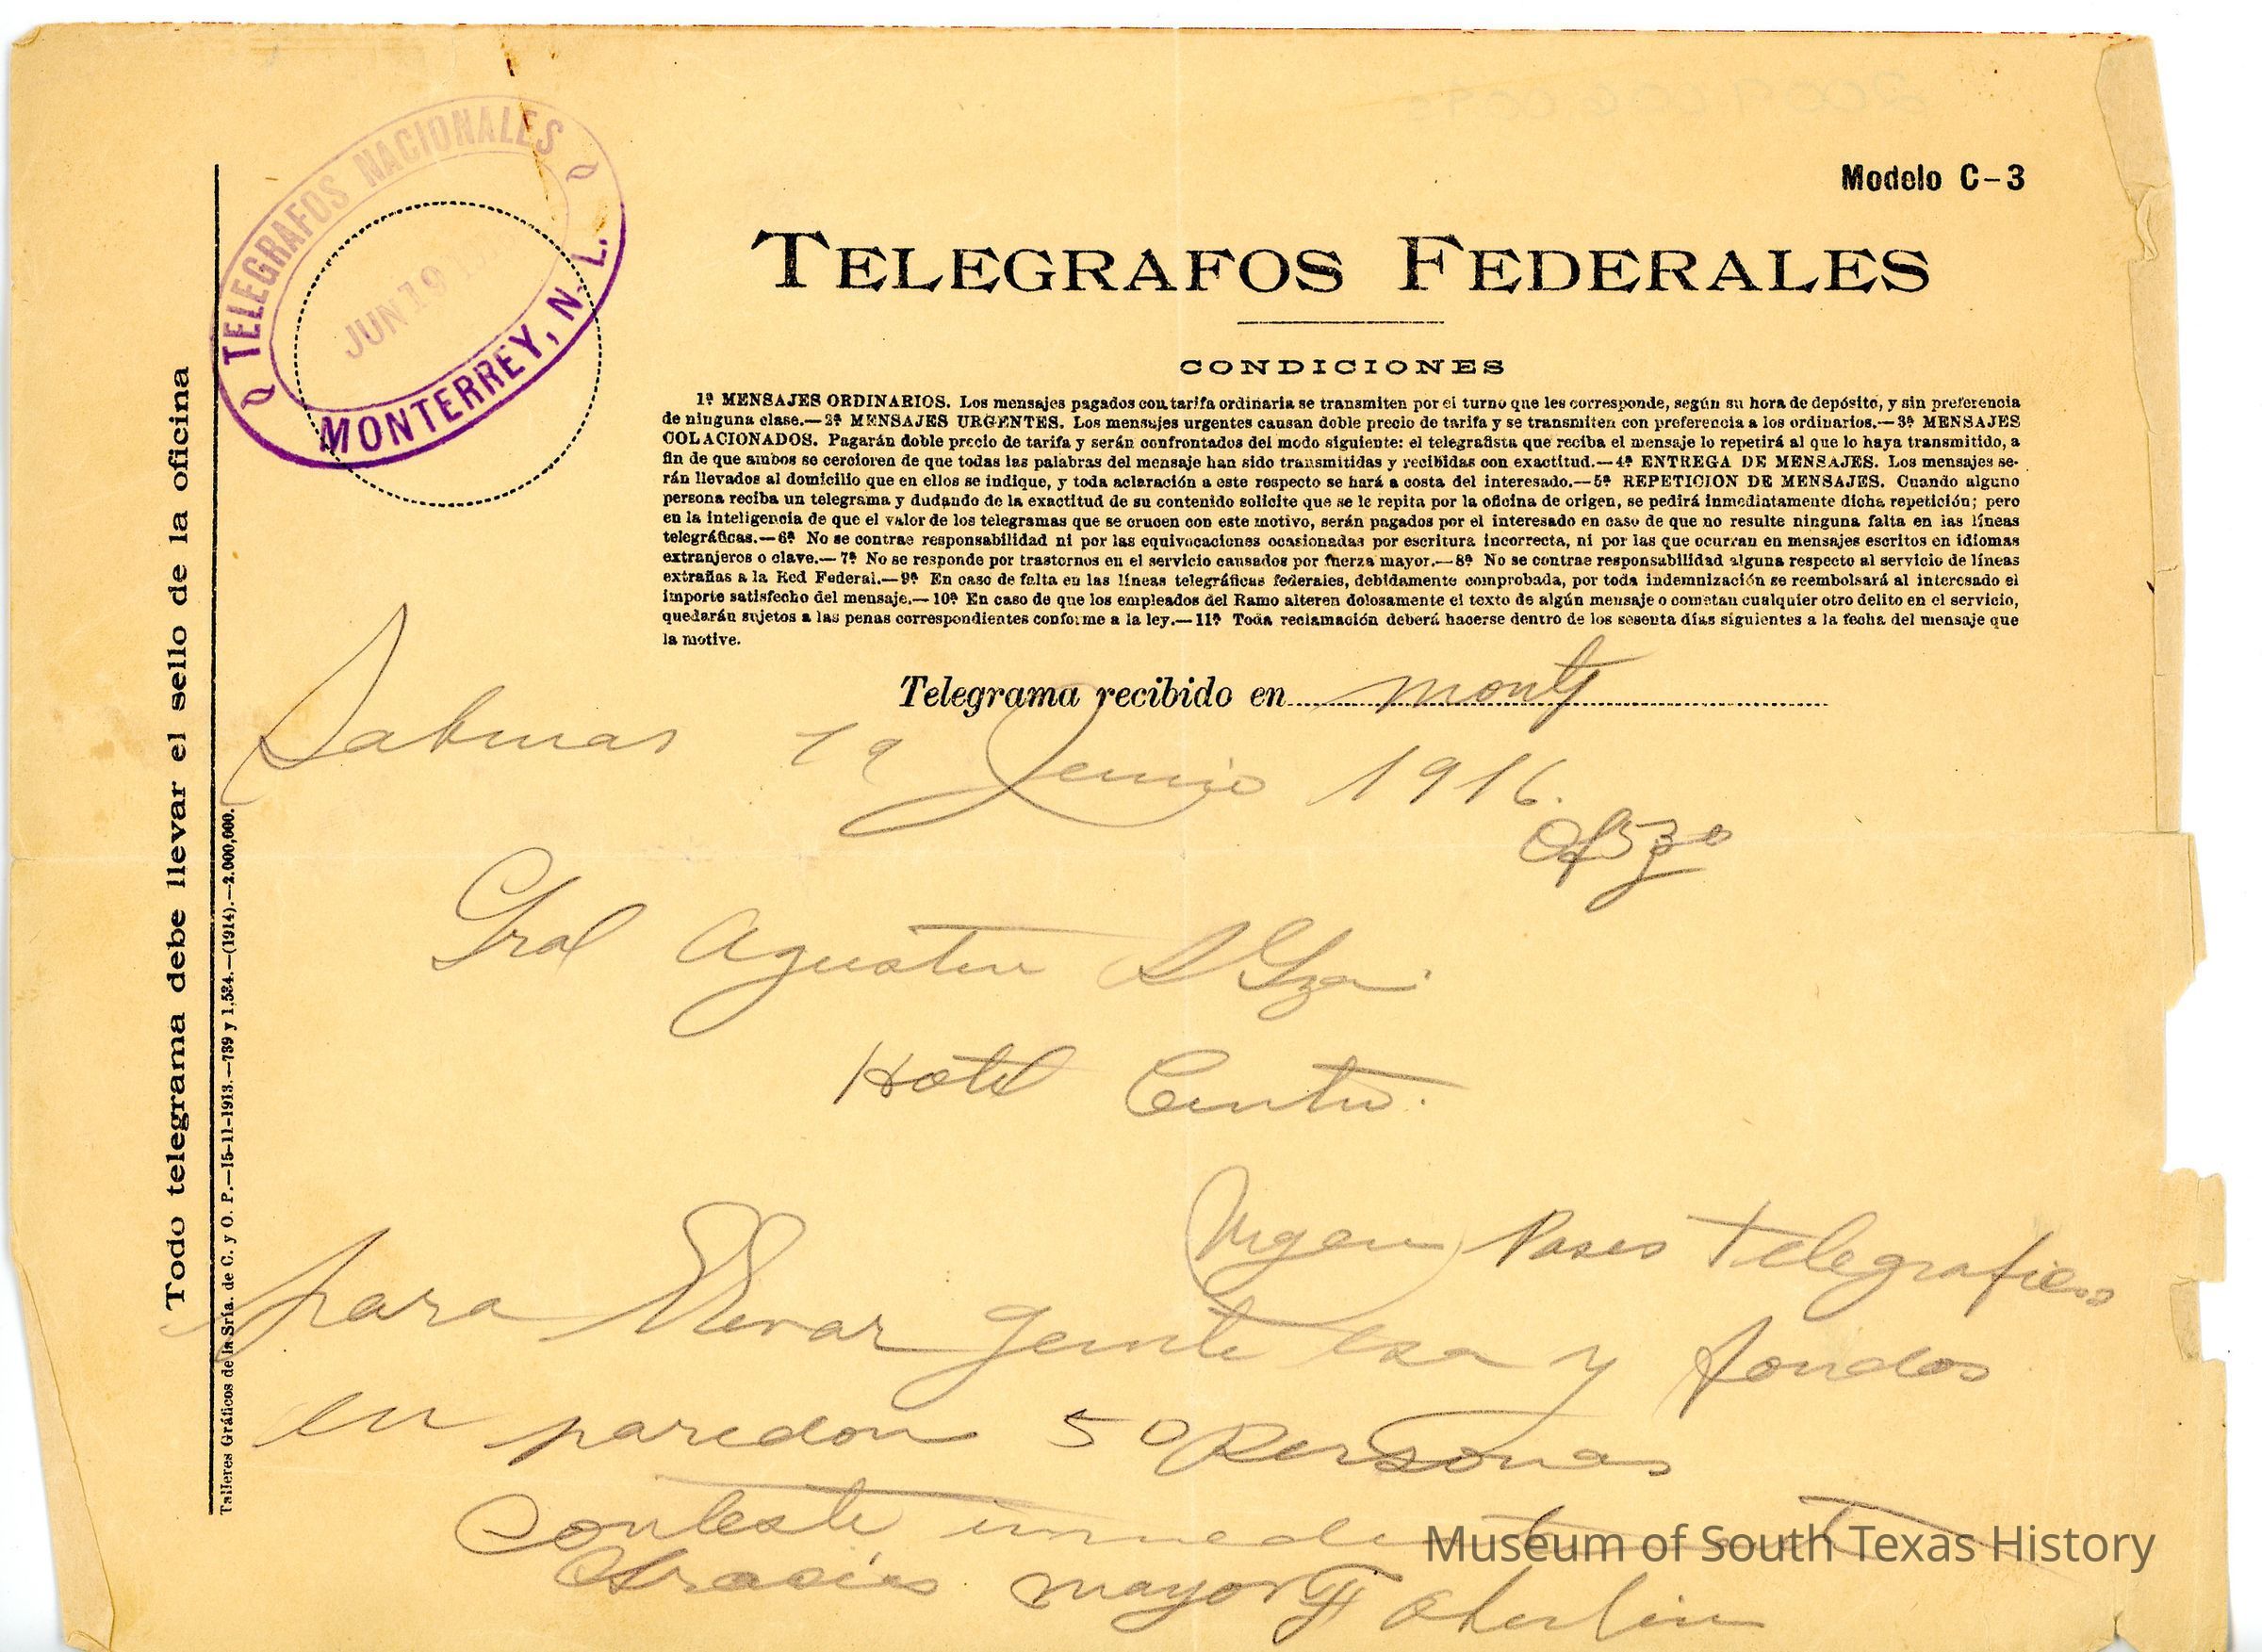 TELEGRAFOS NACIONALES
JUN 19
MONTERREY, N. L.
Modelo C-3
TELEGRAFOS FEDERALES
CONDICIONES
1ª MENSAJES ORDINARIOS. Los mensajes pagados con tarifa ordinaria se transmiten por el turno que les corresponde, según su hora de depósito, y sin preferencia
de ninguna clase.—2ª MENSAJES URGENTES. Los mensajes urgentes causan doble precio de tarifa y se transmiten con preferencia a los ordinarios.—3ª MENSAJES
COLACIONADOS. Pagarán doble precio de tarifa y serán confrontados del modo siguiente: el telegrafista que reciba el mensaje lo repetirá al que lo haya transmitido, a
fin de que ambos se cercioren de que todas las palabras del mensaje han sido transmitidas y recibidas con exactitud.—4ª ENTREGA DE MENSAJES. Los mensajes se-
rán llevados al domicilio que en ellos se indique, y toda aclaración a este respecto se hará a costa del interesado.—5ª REPETICION DE MENSAJES. Cuando alguno
persona reciba un telegrama y dudando de la exactitud de su contenido solicite que se le repita por la oficina de origen, se pedirá inmediatamente dicha repetición; pero
en la inteligencia de que el valor de los telegramas que se crucen con este motivo, serán pagados por el interesado en caso de que no resulte ninguna falta en las líneas
telegráficas.—6ª No se contrae responsabilidad ni por las equivocaciones ocasionadas por escritura incorrecta, ni por las que ocurran en mensajes escritos en idiomas
extranjeros o clave.—7ª No se responde por trastornos en el servicio causados por fuerza mayor.—8ª No se contrae responsabilidad alguna respecto al servicio de líneas
extrañas a la Red Federal.—9ª En caso de falta en las líneas telegráficas federales, debidamente comprobada, por toda indemnización se reembolsará al interesado el
importe satisfecho del mensaje.—10ª En caso de que los empleados del Ramo alteren dolosamente el texto de algún mensaje o cometan cualquier otro delito en el servicio,
quedarán sujetos a las penas correspondientes conforme a la ley.—11ª Toda reclamación deberá hacerse dentro de los sesenta días siguientes a la fecha del mensaje que
la motive.
Telegrama recibido en Monty
Sabinas 19 Junio 1916.
Gral Agustin S Gza.
Hotel Centro.
Urgen Pases Telegraficos
para Llevar gente esa y fondos
en paredon 50 Personas
Conteste inmediatamente
Gracias mayor Oberlin
Todo telegrama debe llevar el sello de la oficina
Talleres Gráficos de la Sría. de C. y O. P.—15-11-1913.—739 y 1,534.—(1914).—2.000,000.
Museum of South Texas History